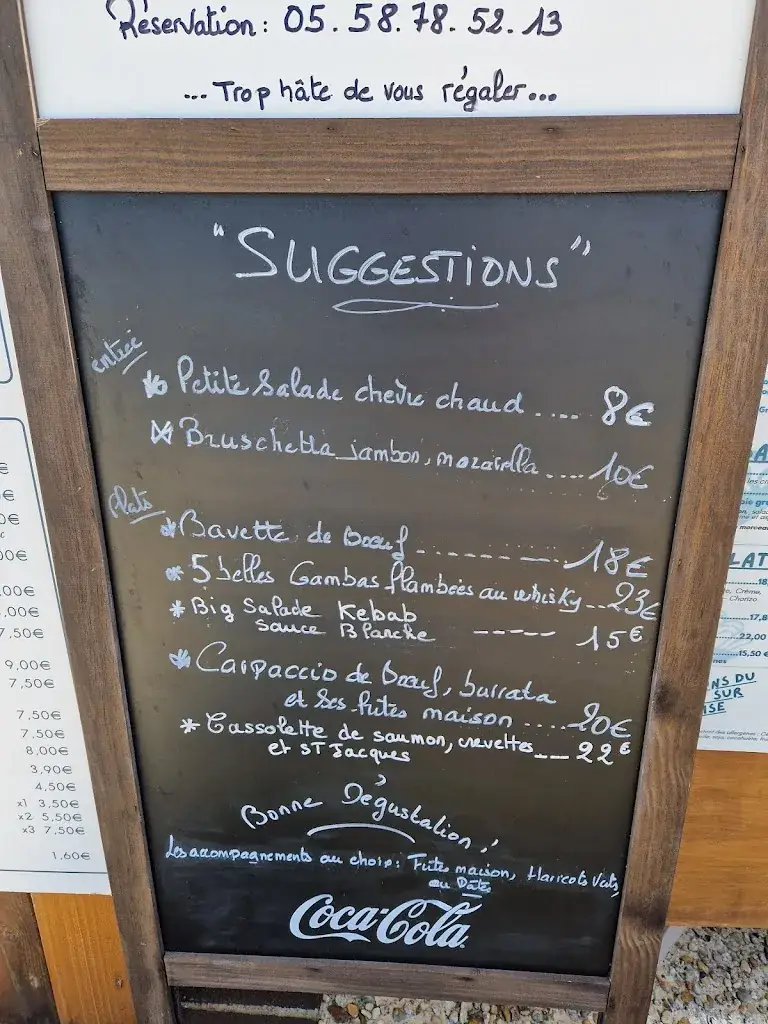 Réservation : 05.58.78.52.13
...Trop hâte de vous régaler...
"SUGGESTIONS"
entrée
Petite Salade chèvre chaud .... 8€
Bruschetta jambon, mozarella .... 10€
plats
Bavette de bœuf ---------- 18€
5 belles Gambas flambées au whisky .. 23€
* Big Salade Kebab
Sauce Blanche ----- 15€
Carpaccio de bœuf, burrata
et ses frites maison .... 20€
* Cassolette de saumon, crevettes -- 22€
et ST Jacques
Bonne Dégustation !
Les accompagnements au choix : Frites maison, Haricots Verts,
ou Pâtes
Coca-Cola
00€
,00€
7,50€
9,00€
7,50€
7,50€
7,50€
8,00€
3,90€
4,50€
x1 3,50€
x2 5,50€
x3 7,50€
1,60€
LAT
Crème,
Chorizo
22,00
15,50 €
NS DU
SUR